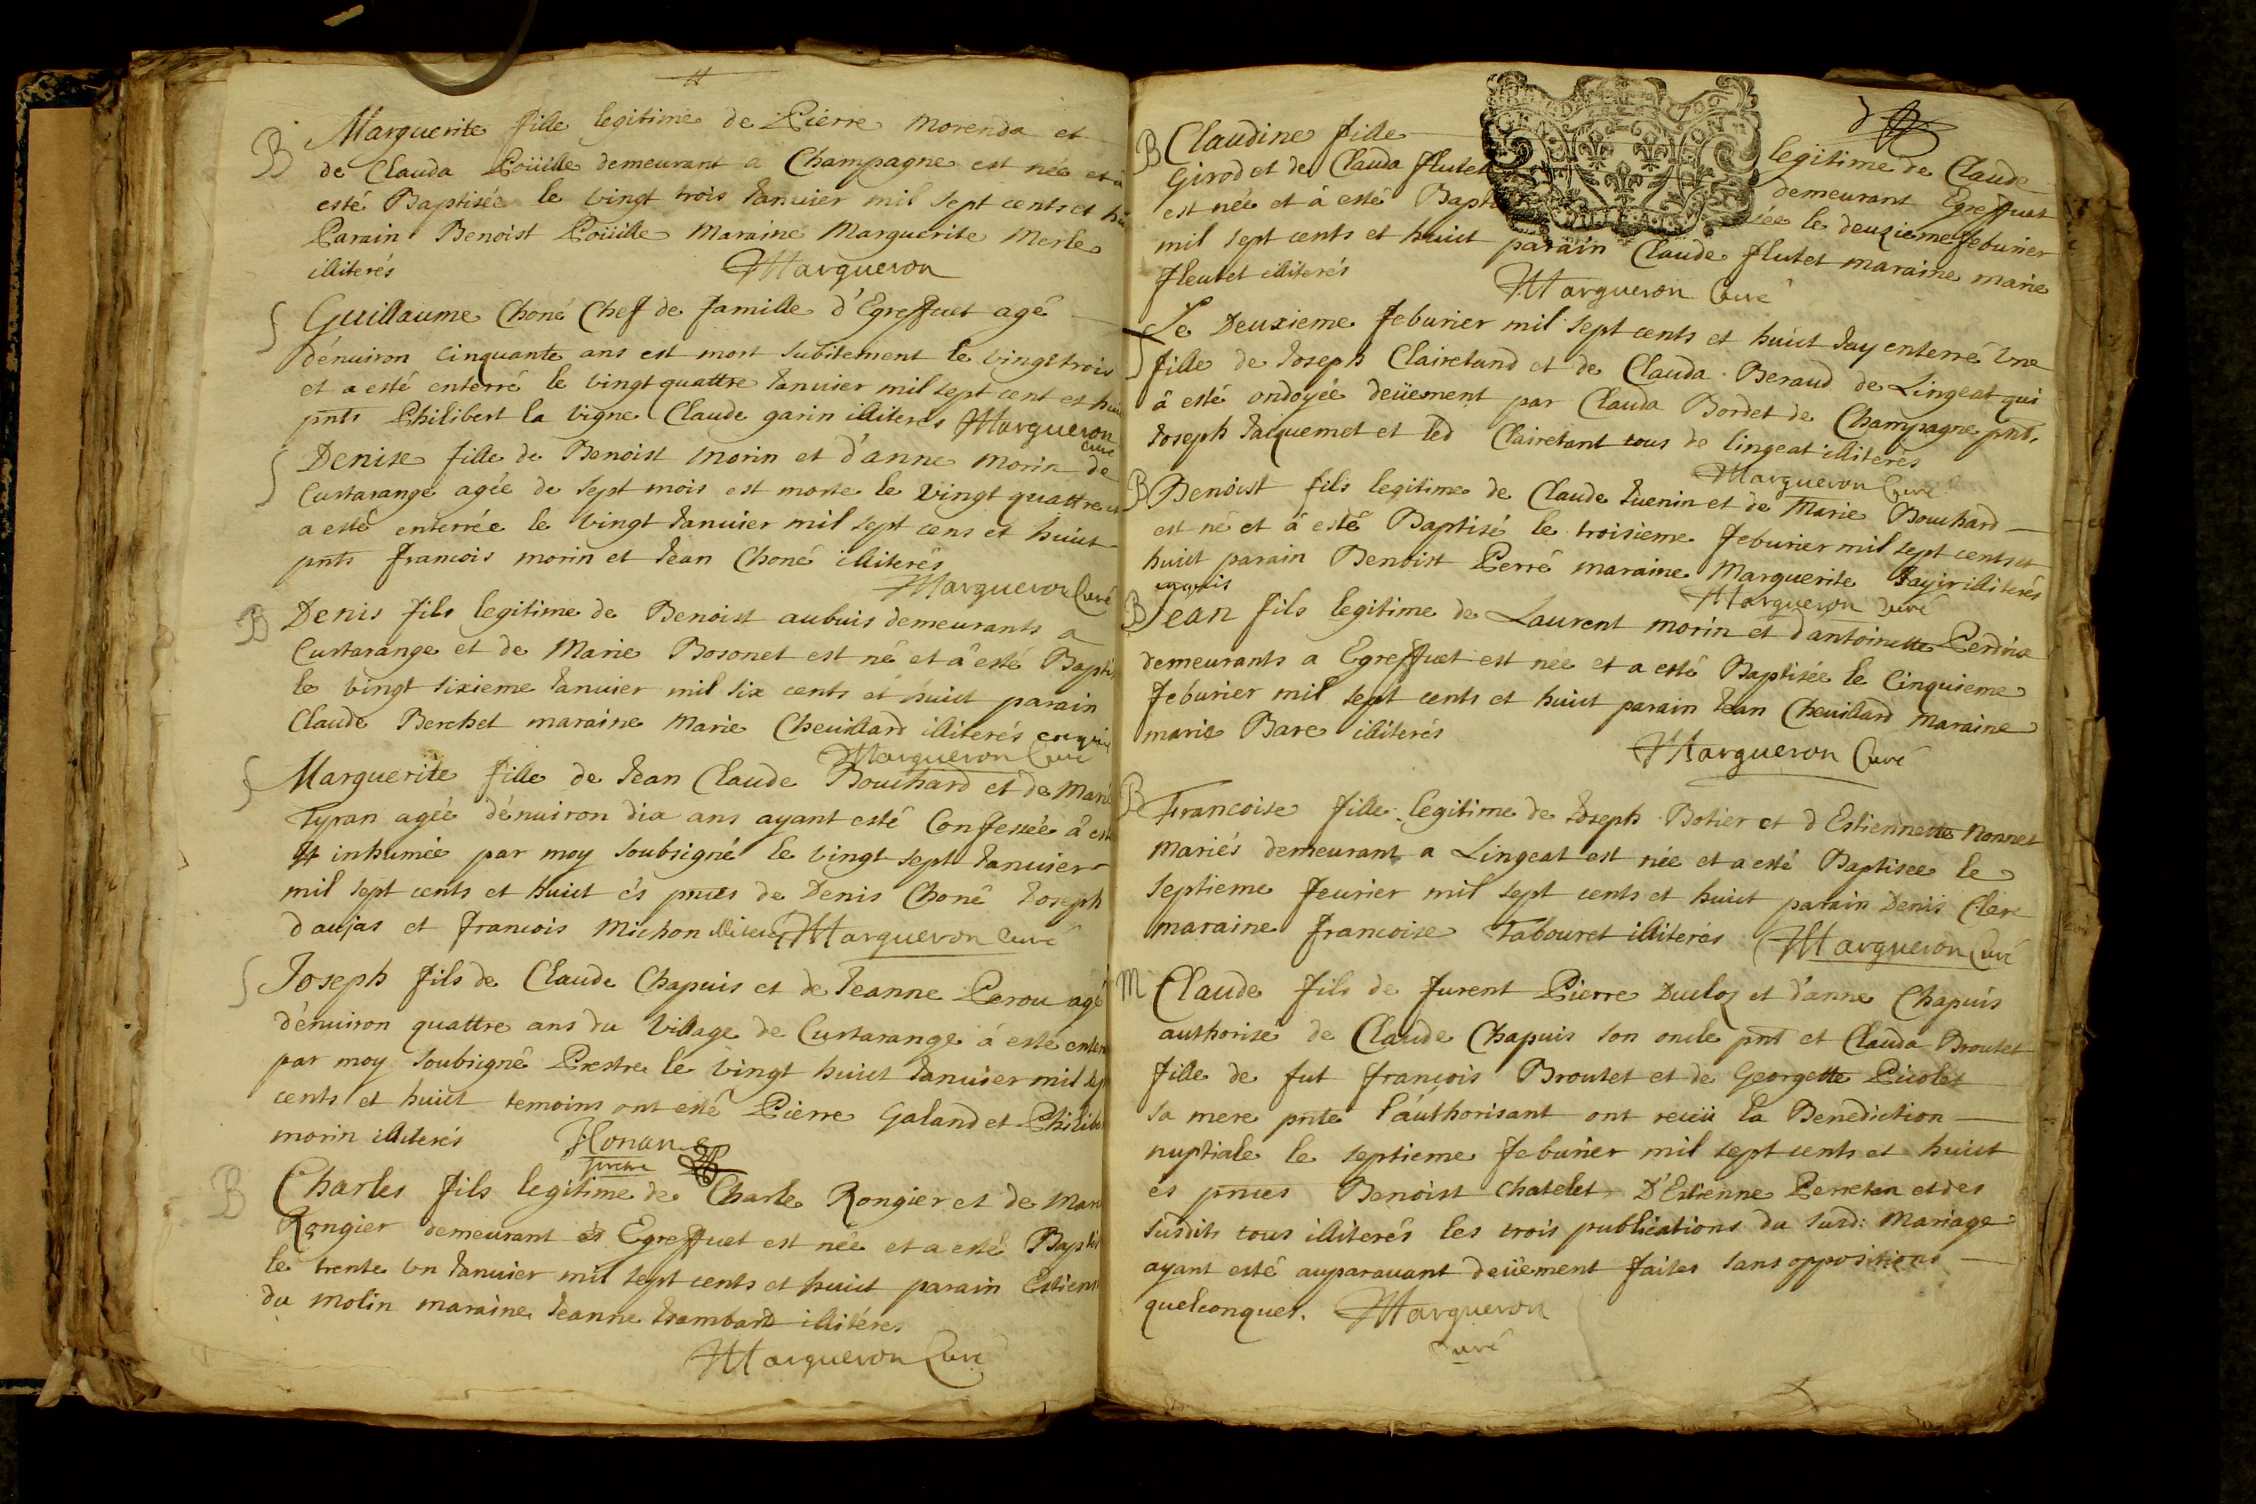 B Marguerite fille legitime de Pierre Morenda et
de Clauda Poüille demeurant a Champagne est née et à
esté Baptisée le vingt trois Janvier mil sept cents et hui
Parain Benoist Poüille Maraine Marguerite Merle
illiterés Margueron
S Guillaume Choné Chef de famille d'Egreffuet agé
dénuiron Cinquante ans est mort subitement le vingt trois
et a esté enterré le vingt quattre Janvier mil sept cent et hui
pnts Philibert la vigne Claude garin illiterés Margueron
Curé
S Denise fille de Benoist morin et d'anne morin de
Curtarange agée de sept mois est morte le vingt quattre et
a esté enterrée le vingt Janvier mil sept cens et huict
pnts francois morin et Jean Choné illiterés
Margueron Curé
B Denis fils legitime de Benoist aubuis demeurants a
Curtarange et de Marie Bosonet est né et a esté Bapti
le vingt sixieme Janvier mil six cents et huict parain
Claude Berchet maraine Marie Cheuillard illiterés enquis
Margueron Curé
S Marguerite fille de Jean Claude Bouchard et de Marie
Tyran agée dénuiron dix ans ayant esté Confessée â esté
inhumée par moy soubsigné le vingt sept Janvier
mil sept cents et huict és pnces de Denis Choné Joseph
daujas et francois Michon illiterés Margueron Curé
S Joseph fils de Claude Chapuis et de Jeanne Perou agé
dénuiron quattre ans du village de Curtarange á esté enter
par moy soubsigné Prestre le vingt huict Janvier mil sep
cents et huict temoins ont esté Pierre Galand et Philib
morin illiterés
B Charles fils legitime de Charle Rongier et de Mari
Rongier demeurant Egreffuet est née et a esté Baptis
le trente vn Janvier mil sept cents et huict parain Estienn
du Molin maraine Jeanne illitéres
Margueron Curé
B Claudine fille legitime de Claude
Girod et de Clauda flutet demeurant Egreffuet
est née et â esté Baptisée le deuzieme feburier
mil sept cents et huict parain Claude flutet maraine marie
fleutet illiterés Margueron Curé
S Le Deuxieme feburier mil sept cents et huict Jay enterré Vne
fille de Joseph Clairetand et de Clauda Beraud de Lingeat qui
â esté ondoyée deüement par Clauda Bordet de Champagne pnts
Joseph Jaquemet et led Clairetant tous de lingeat illiterés
Margueron Curé
B Benoist fils legitime de Claude Juenin et de Marie Bouchard
est né et â esté Baptisé le troisieme feburier mil sept cents et
huict parain Benoist Perré maraine Marguerite illiterés
enquis Margueron Curé
B Jean fils legitime de Laurent morin et d'antoinette Perdrix
demeurants a Egreffuet est née et a esté Baptisée le Cinquieme
feburier mil sept cents et huict parain Jean Cheuillard Maraine
marie Bare illiterés
Margueron Curé
B Francoise fille legitime de Joseph Botier et d Estiennette Nonnet
Mariés demeurant a Lingeat est née et a esté Baptisee le
septieme feurier mil sept cents et huict parain Denis Clerc
maraine francoise Tabouret illiterés Margueron Curé
M Claude fils de furent Pierre Ducloz et d'anne Chapuis
authorise de Claude Chapuis son oncle pnt et Clauda Broutet
fille de fut françois Broutet et de Georgette Picolet
sa mere pnte l'authorisant ont receü la Benediction
nuptiale le septieme feburier mil sept cents et huict
es pnces Benoist Chatelet D'Estienne Perretan et des
susdits tous illiterés les trois publications du susd: Mariage
ayant esté auparavant deüement faites sans oppositions
quelconques. Margueron
Curé